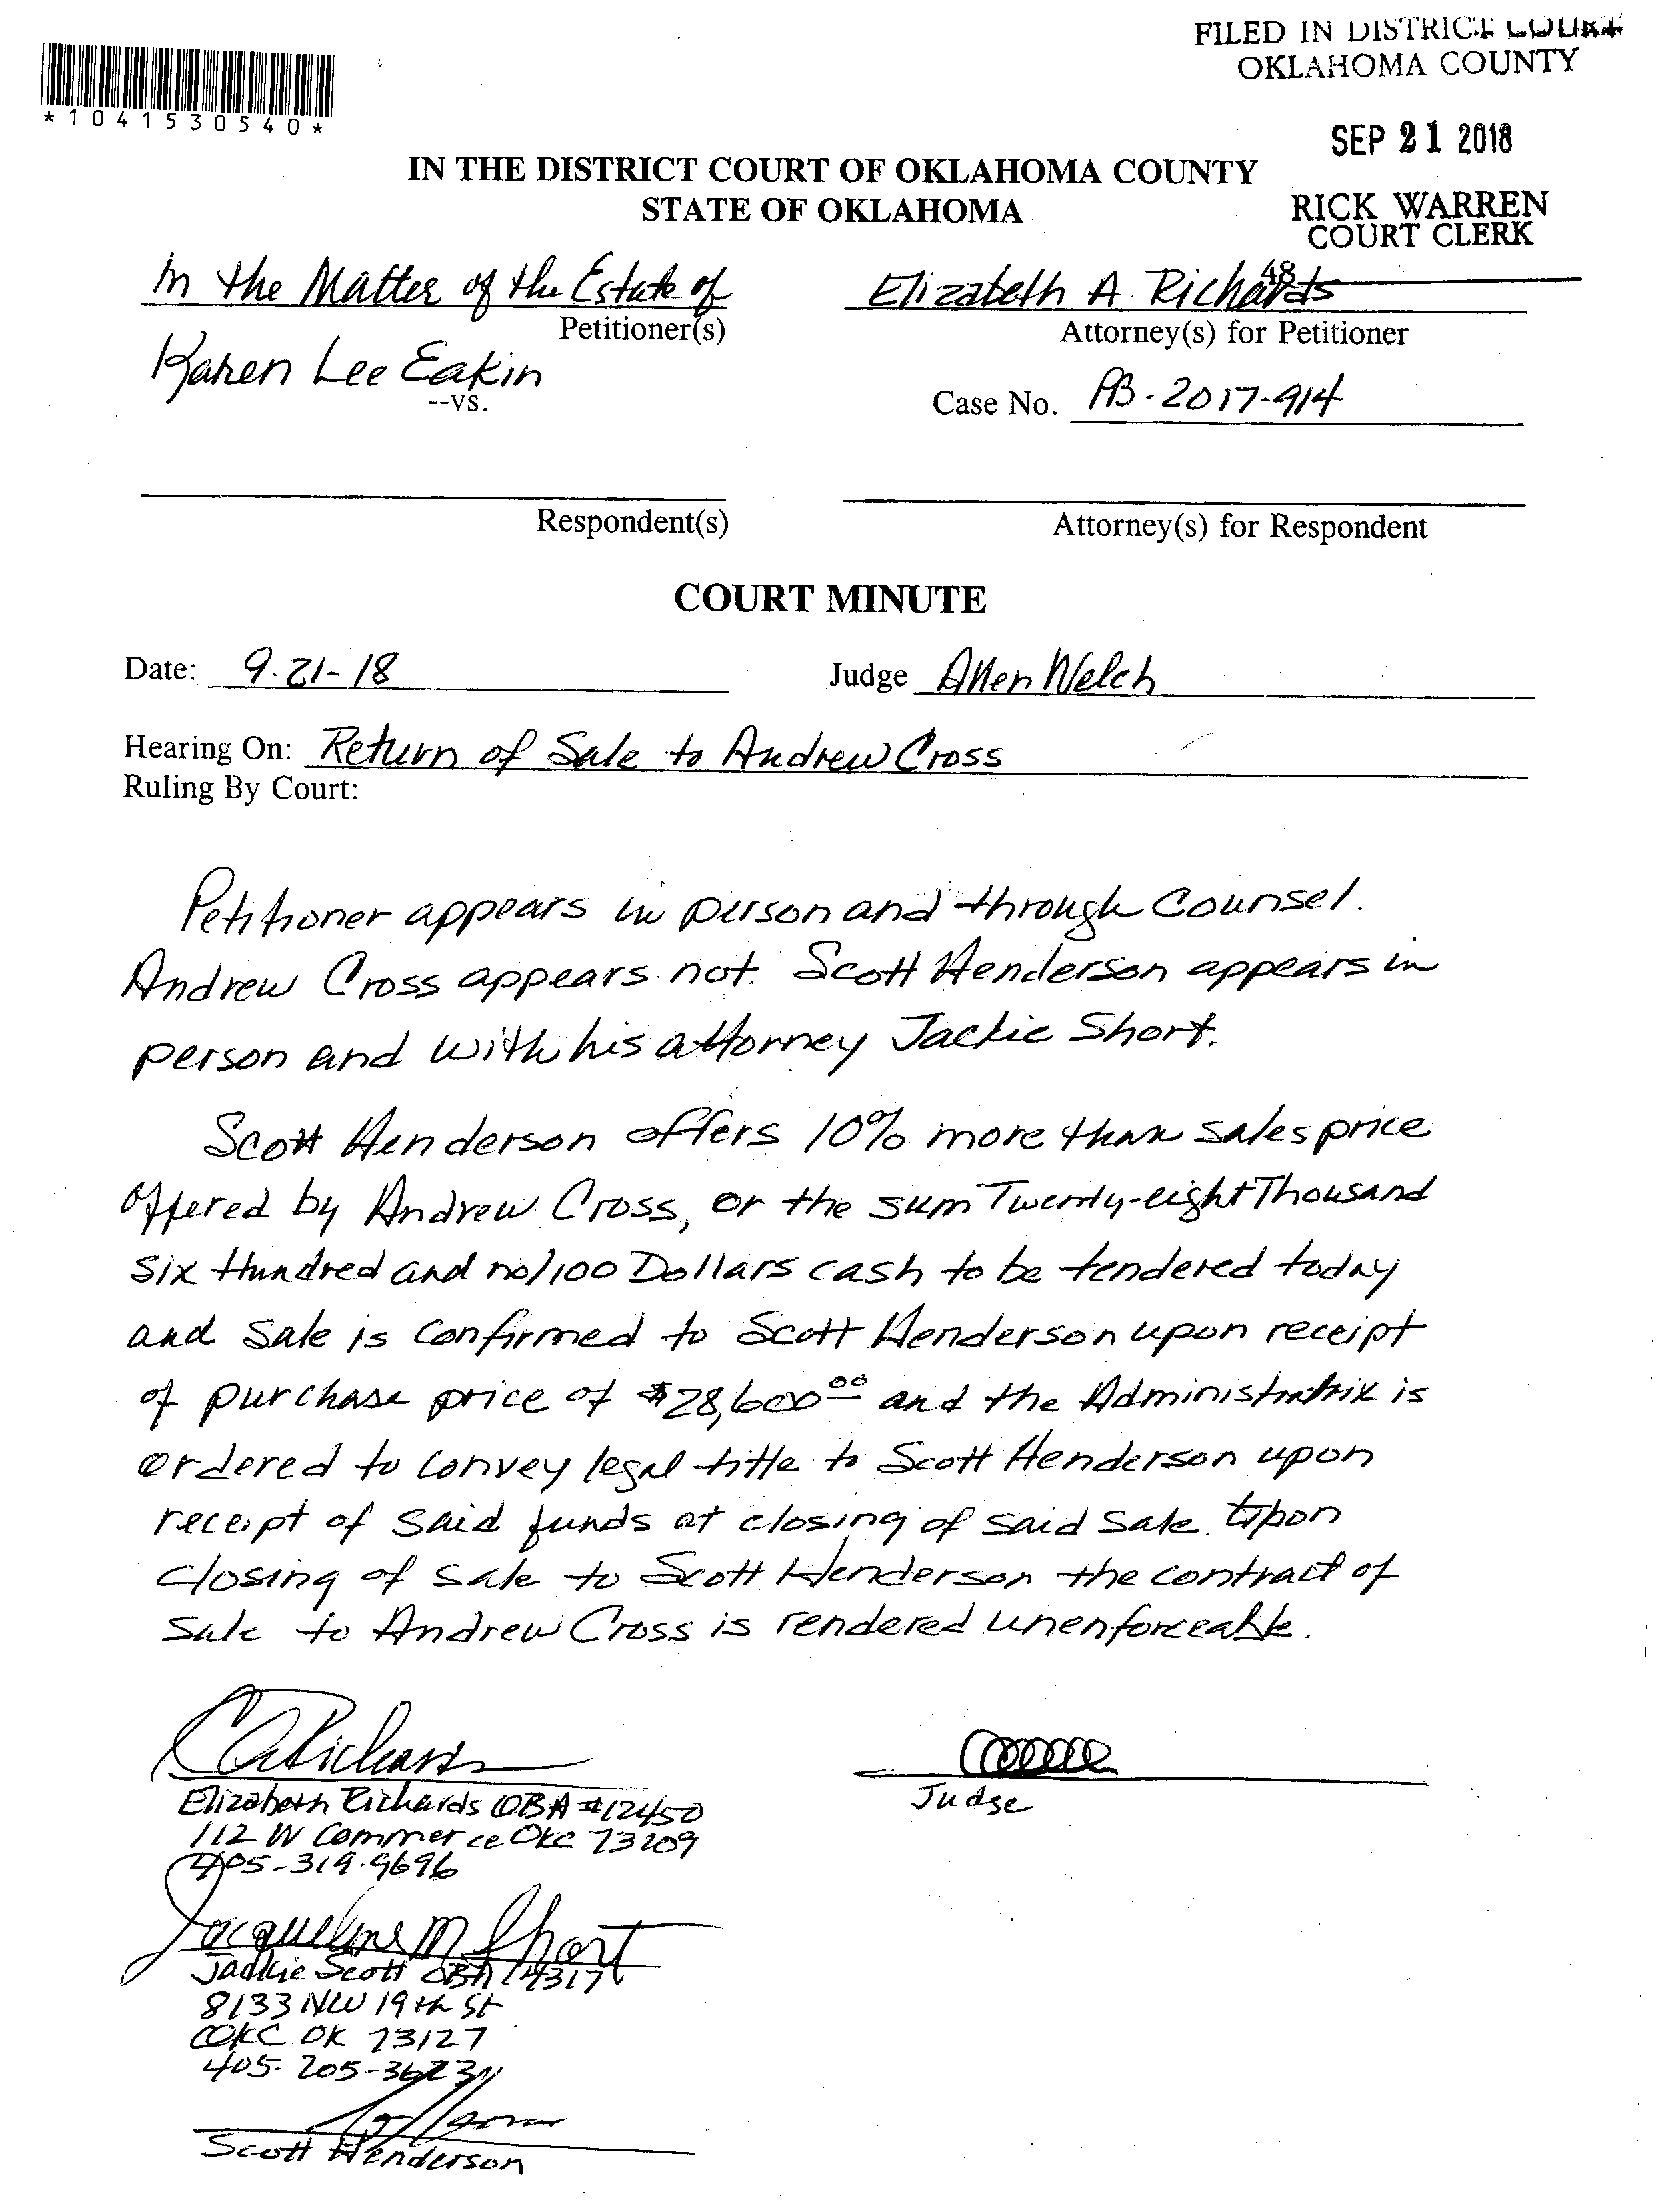 FILED IN DISTRICT COURT
OKLAHOMA COUNTY
*1041530540*
SEP 21 2018
IN THE DISTRICT COURT OF OKLAHOMA COUNTY
STATE OF OKLAHOMA
RICK WARREN
COURT CLERK
48
In the Matter of the Estate of
Petitioner(s)
Karen Lee Eakin
--VS.
Elizabeth A. Richards
Attorney(s) for Petitioner
Case No. PB-2017-914
Respondent(s)
Attorney(s) for Respondent
COURT MINUTE
Date: 9-21-18
Judge Allen Welch
Hearing On: Return of Sale to Andrew Cross
Ruling By Court:
Petitioner appears in person and through Counsel.
Andrew Cross appears not. Scott Henderson appears in
person and with his attorney Jackie Short.
Scott Henderson offers 10% more than sales price
offered by Andrew Cross, or the sum Twenty-eight Thousand
Six Hundred and no/100 Dollars cash to be tendered today
and Sale is Confirmed to Scott Henderson upon receipt
of purchase price of $28,600.00 and the Administratrix is
ordered to convey legal title to Scott Henderson upon
receipt of said funds at closing of said Sale. Upon
closing of sale to Scott Henderson the contract of
Sale to Andrew Cross is rendered unenforceable.
EARichards
Elizabeth Richards OBA #12450
112 W Commerce OKC 73109
405-319-9696
Judge
Jacqueline M Short
Jackie Scott OBA 14317
8133 NW 19th St
OKC OK 73127
405-205-3623
Scott Henderson